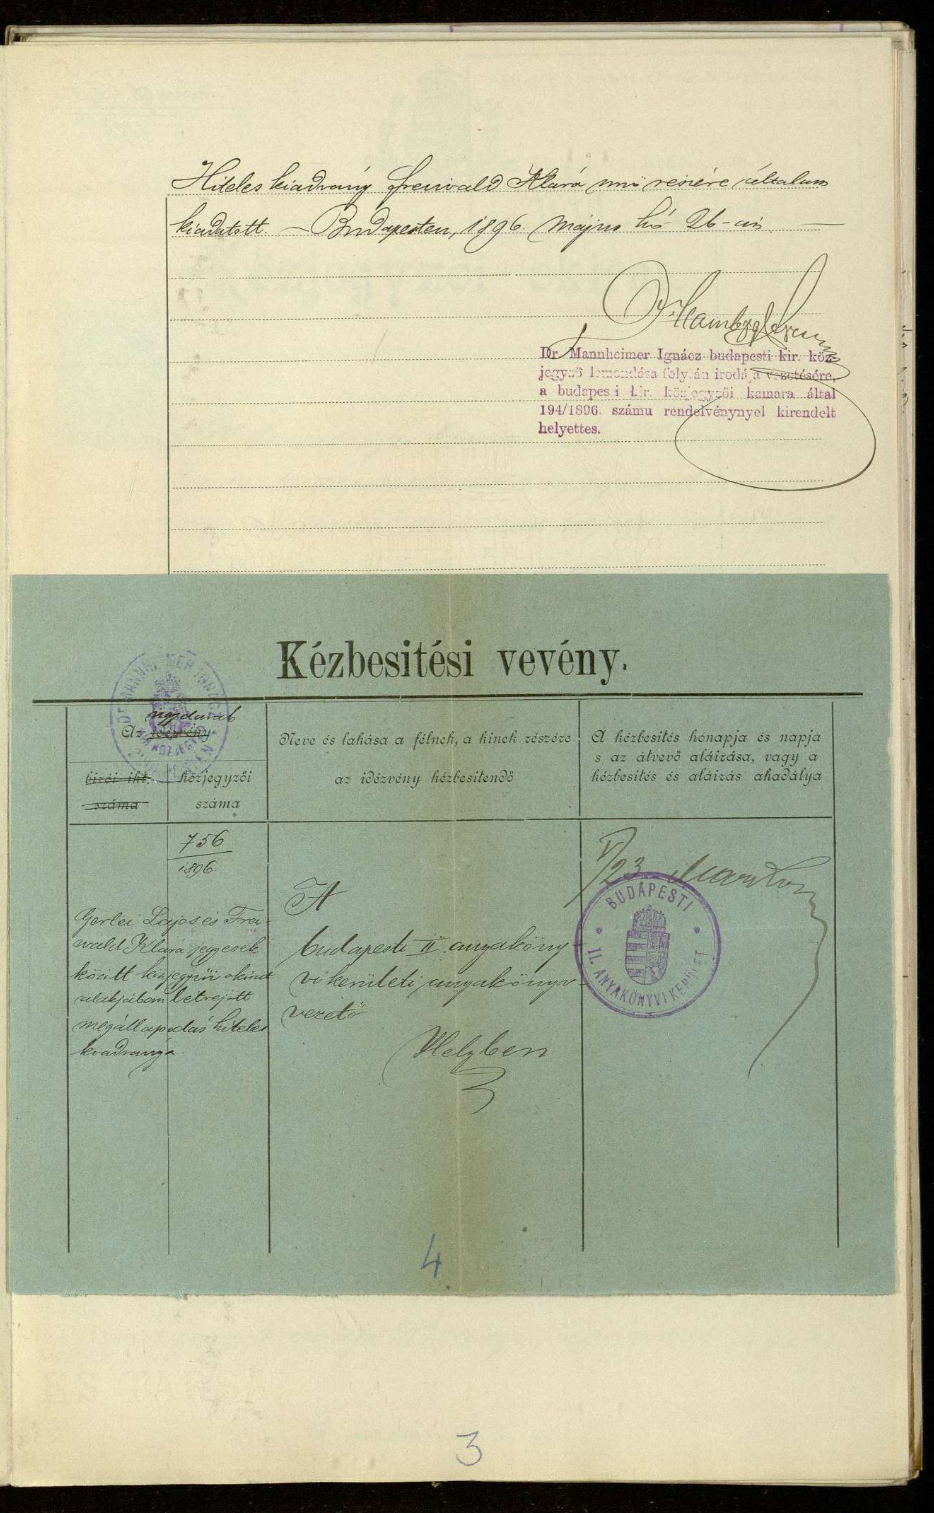 Hiteles kiadvány Freiwald Klára nnő részére általam
kiadatott. — Budapesten, 1896 május hó 26-án —
Dr.
Dr. Mannheimer Ignácz budapesti kir. köz-
jegyző lemondása folytán irodája vezetésére,
a budapesti kir. közjegyzői kamara által
194/1896. számu rendelvénynyel kirendelt
helyettes.
Kézbesitési vevény.
DR MANNHEIMER IGNÁCZ
KIR KÖZJEGYZŐ
Az idézvény
birói ikt. száma
közjegyzői száma
Neve és lakása a félnek, a kinek részére
az idézvény kézbesitendő
A kézbesités hónapja és napja
s az átvevő aláirása, vagy a
kézbesités és aláirás akadálya
756
1896
Gerlei Lajos és Frei-
wald Klára jegyesek
között közjegyzői okirat
alakjában létrejött
megállapodás hiteles
kiadványa
A
budapesti II. anyaköny-
vi kerületi anyakönyv-
vezető
Helyben
V/23
BUDAPESTI
II. ANYAKÖNYVI KERÜLET
4
3